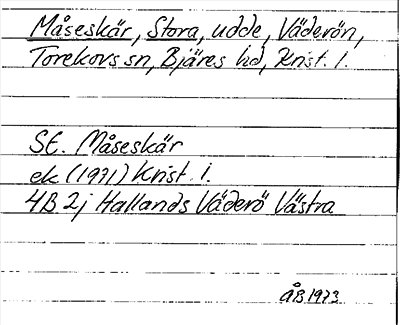 Måseskär, Stora, udde, Väderön,
Torekovs sn, Bjäres hd, Krist. l.
St. Måseskär
ek (1971) Krist. l.
4B 2j Hallands Väderö Västra
ÅB 1973